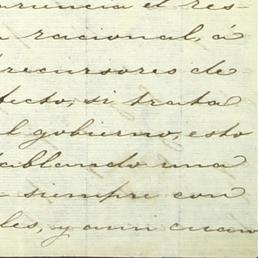 urencia el res-
racional, á
recursores de-
fecto, si trata
l gobierno, esto
tablando una
siempre con
les, y aun cuan